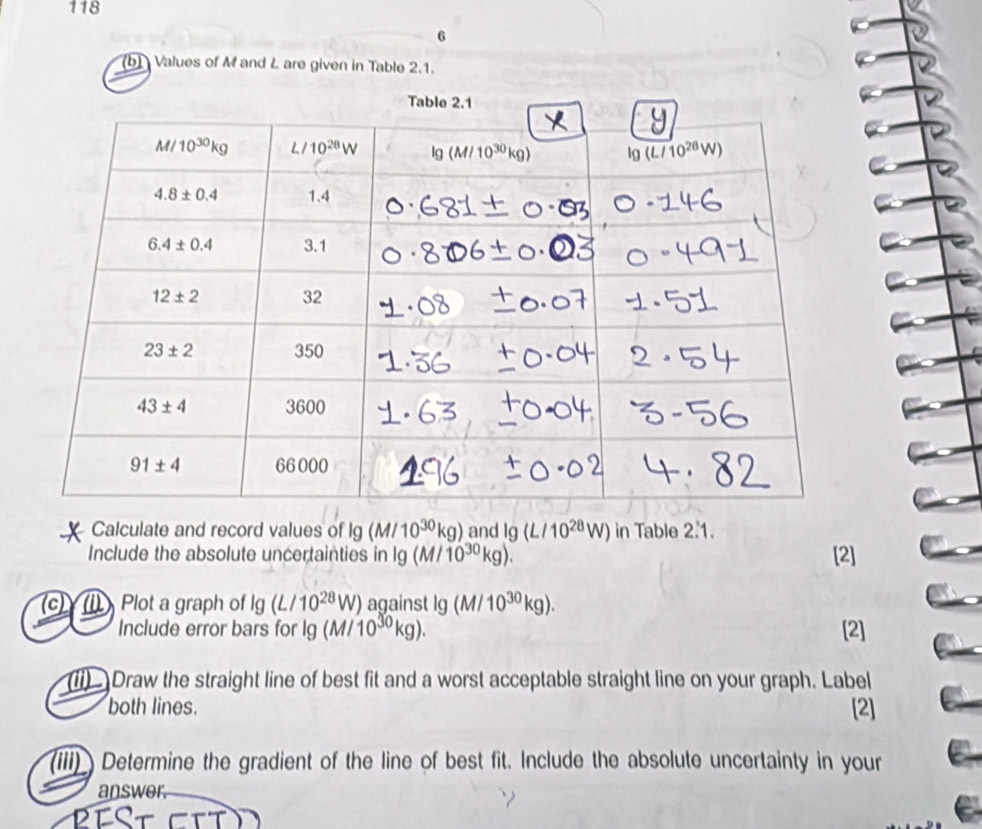 118
6
(b) Values of M and L are given in Table 2.1.
Table 2.1
x y
M/10³⁰kg L/10²⁸W lg (M/10³⁰kg) lg (L/10²⁸W)
4.8 ± 0.4 1.4 0.681 ± 0.03 0.146
6.4 ± 0.4 3.1 0.806 ± 0.03 0.491
12 ± 2 32 1.08 ± 0.07 1.51
23 ± 2 350 1.36 ± 0.04 2.54
43 ± 4 3600 1.63 ± 0.04 3.56
91 ± 4 66000 1.96 ± 0.02 4.82
Calculate and record values of lg (M/10³⁰kg) and lg (L/10²⁸W) in Table 2.1.
Include the absolute uncertainties in lg (M/10³⁰kg). [2]
(c) (i) Plot a graph of lg (L/10²⁸W) against lg (M/10³⁰kg).
Include error bars for lg (M/10³⁰kg). [2]
(ii) Draw the straight line of best fit and a worst acceptable straight line on your graph. Label
both lines. [2]
(iii) Determine the gradient of the line of best fit. Include the absolute uncertainty in your
answer.
BEST FIT))